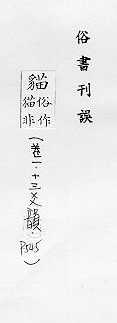 俗書刊誤
貓
俗作
猫非
(卷一.十三爻韻.P545)